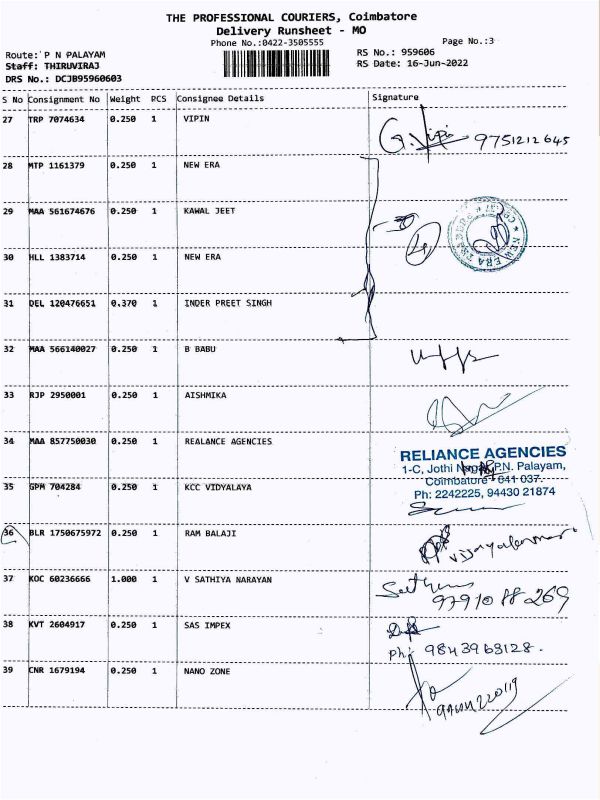 THE PROFESSIONAL COURIERS, Coimbatore
Delivery Runsheet - MO
Phone No.:0422-3505555
Page No.:3
Route: P N PALAYAM
RS No.: 959606
Staff: THIRUVIRAJ
RS Date: 16-Jun-2022
DRS No.: DCJB95960603
S No Consignment No Weight PCS Consignee Details Signature
27 TRP 7074634 0.250 1 VIPIN
G. Vipi 9751212645
28 MTP 1161379 0.250 1 NEW ERA
29 MAA 561674676 0.250 1 KAWAL JEET
NEW ERA
30 HLL 1383714 0.250 1 NEW ERA
31 DEL 120476651 0.370 1 INDER PREET SINGH
32 MAA 566140027 0.250 1 B BABU
33 RJP 2950001 0.250 1 AISHMIKA
34 MAA 857750030 0.250 1 REALANCE AGENCIES
RELIANCE AGENCIES
1-C, Jothi Nagar, P.N. Palayam,
Coimbatore - 641 037.
Ph: 2242225, 94430 21874
35 GPM 704284 0.250 1 KCC VIDYALAYA
36 BLR 1750675972 0.250 1 RAM BALAJI
37 KOC 60236666 1.000 1 V SATHIYA NARAYAN
97910 88 269
38 KVT 2604917 0.250 1 SAS IMPEX
Ph: 9843963128.
39 CNR 1679194 0.250 1 NANO ZONE